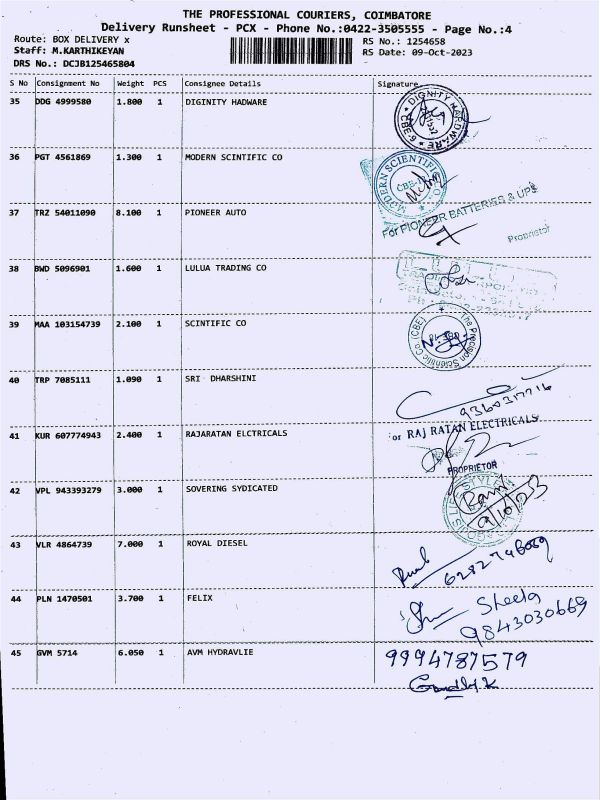 THE PROFESSIONAL COURIERS, COIMBATORE
Delivery Runsheet - PCX - Phone No.:0422-3505555 - Page No.:4
Route: BOX DELIVERY x
RS No.: 1254658
Staff: M.KARTHIKEYAN
RS Date: 09-Oct-2023
DRS No.: DCJB125465804
S No Consignment No Weight PCS Consignee Details Signature
35 DDG 4999580 1.800 1 DIGINITY HADWARE
DIGNITY HARDWARE
CBE-6
36 PGT 4561869 1.300 1 MODERN SCINTIFIC CO
MODERN SCIENTIFIC CO.
37 TRZ 54011090 8.100 1 PIONEER AUTO
For PIONEER BATTERIES & UPS
Proprietor
38 BWD 5096901 1.600 1 LULUA TRADING CO
39 MAA 103154739 2.100 1 SCINTIFIC CO
The Precision Scientific Co. (CBE)
40 TRP 7085111 1.090 1 SRI DHARSHINI
41 KUR 607774943 2.400 1 RAJARATAN ELCTRICALS
or RAJ RATAN ELECTRICALS
PROPRIETOR
42 VPL 943393279 3.000 1 SOVERING SYDICATED
9/10/23
43 VLR 4864739 7.000 1 ROYAL DIESEL
44 PLN 1470501 3.700 1 FELIX
Sheela
9843030669
45 GVM 5714 6.050 1 AVM HYDRAVLIE
9994787579